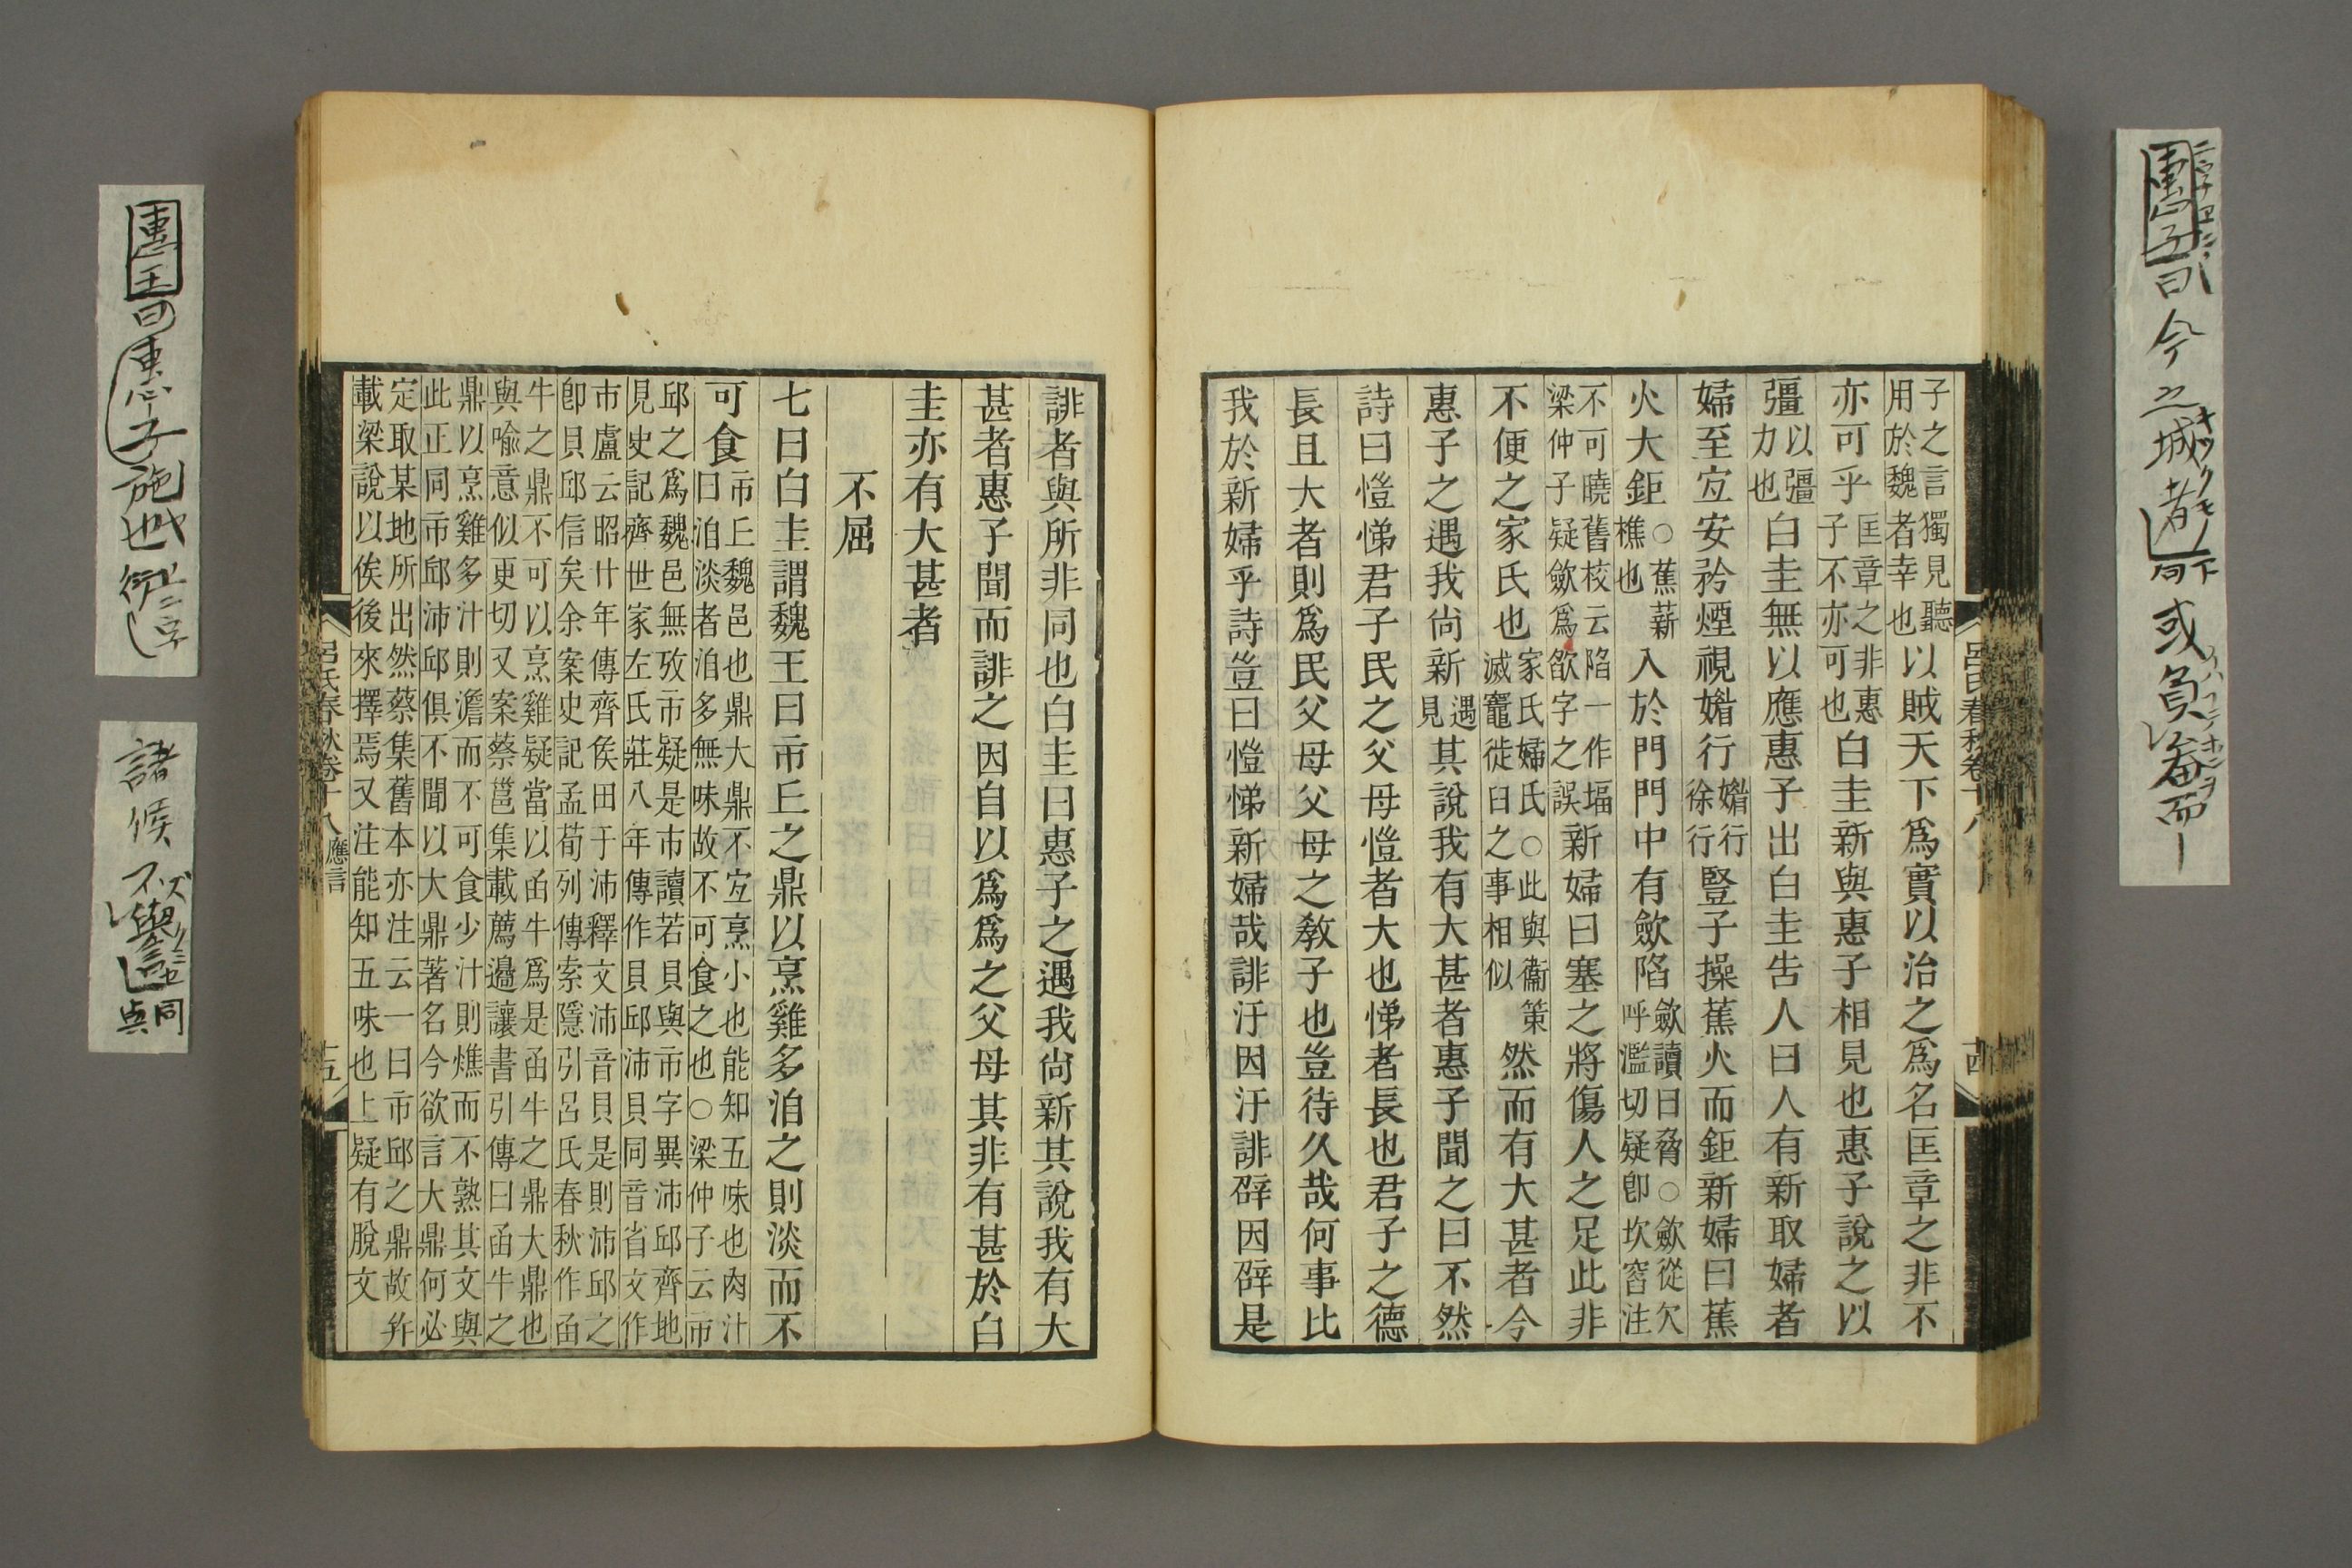 惠子曰今之城者同或負畚而｜
子之言獨見聽用於魏者幸也以賊天下爲實以治之爲名匡章之非不
亦可乎匡章之非惠子不亦可也白圭新與惠子相見也惠子說之以
彊以彊力也白圭無以應惠子出白圭告人曰人有新取婦者
婦至宐安矜煙視媎行媎行徐行豎子操蕉火而鉅新婦曰蕉
火大鉅○蕉薪樵也入於門門中有歛陷歛讀曰脅○歛從欠呼濫切疑卽坎窞注
不可曉舊校云陷一作堛梁仲子疑歛爲欲字之誤新婦曰塞之將傷人之足此非
不便之家氏也家氏婦氏○此與衞策滅竈徙臼之事相似然而有大甚者今
惠子之遇我尙新遇見其說我有大甚者惠子聞之曰不然
詩曰愷悌君子民之父母愷者大也悌者長也君子之德
長且大者則爲民父母父母之敎子也豈待久哉何事比
我於新婦乎詩豈曰愷悌新婦哉誹汙因汙誹辟因辟是
呂氏春秋卷十八
十四
誹者與所非同也白圭曰惠子之遇我尙新其說我有大
甚者惠子聞而誹之因自以爲爲之父母其非有甚於白
圭亦有大甚者
不屈
七曰白圭謂魏王曰市丘之鼎以烹雞多洎之則淡而不
可食市丘魏邑也鼎大鼎不宐烹小也能知五味也肉汁曰洎淡者洎多無味故不可食之也○梁仲子云市
邱之爲魏邑無攷市疑是巿讀若貝與市字異沛邱齊地見史記齊世家左氏莊八年傳作貝邱沛貝同音省文作
市盧云昭廿年傳齊侯田于沛釋文沛音貝是則沛邱之卽貝邱信矣余案史記孟荀列傳索隱引呂氏春秋作函
牛之鼎不可以烹雞疑當以函牛爲是函牛之鼎大鼎也與喩意似更切又案蔡邕集載薦邊讓書引傳曰函牛之
鼎以烹雞多汁則澹而不可食少汁則熯而不熟其文與此正同市邱沛邱俱不聞以大鼎著名今欲言大鼎何必
定取某地所出然蔡集舊本亦注云一曰市邱之鼎故幷載梁說以俟後來擇焉又注能知五味也上疑有脫文
呂氏春秋卷十八應言
十五
惠王曰惠子施也
諸侯不譽